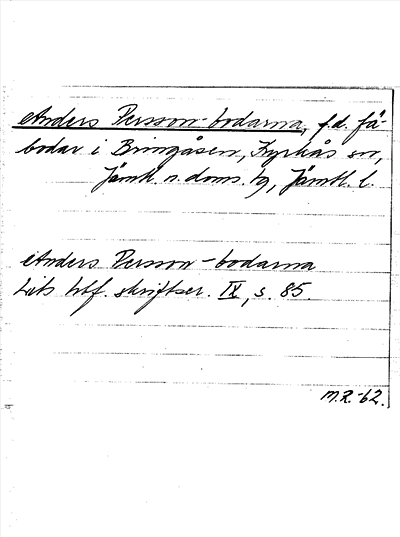 Anders Persson-bodarna, f.d. fä-
bodar i Bringåsen, Kyrkås sn,
Jämtl. n. doms. tg, Jämtl. l.
Anders Persson-bodarna
Lits hbf. skriftser. IX, s. 85.
M.R.-62.